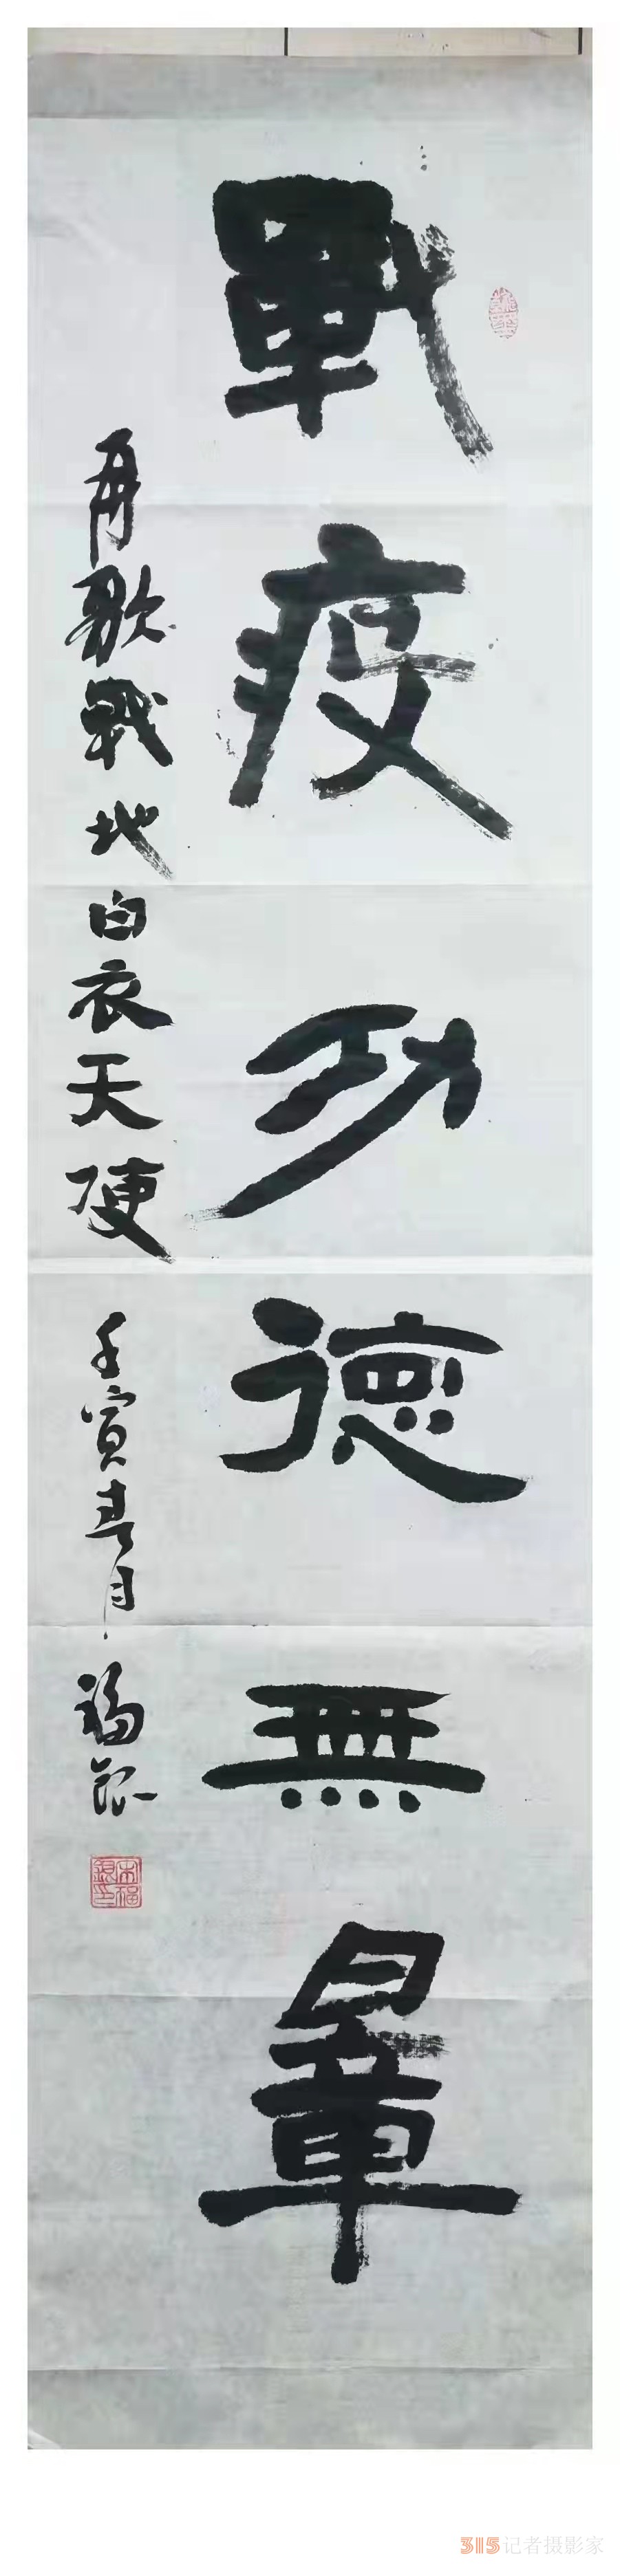 戰疫功德無量
再歌戰地白衣天使
壬寅春月 福
宋福
315记者摄影家